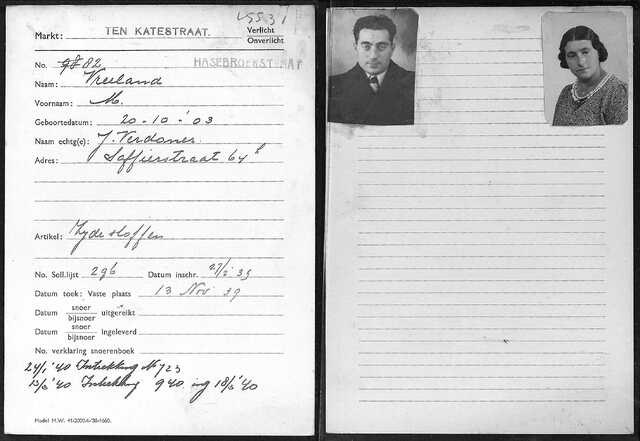 Markt: TEN KATESTRAAT. Verlicht
Onverlicht
HASEBROEKSTRAAT
No. 98 82
Naam: Vreeland
Voornaam: M.
Geboortedatum: 20-10-'03
Naam echtg(e): J. Verdoner
Adres: Saffierstraat 64
Artikel: Zyde stoffen
No. Soll.lijst 296 Datum inschr. 27/2 35
Datum toek: Vaste plaats 13 Nov 39
Datum snoer
bijsnoer uitgereikt
Datum snoer
bijsnoer ingeleverd
No. verklaring snoerenboek
24/1 '40 Intrekking No 723
13/5 '40 Intrekking 940 ing 18/5 '40
Model M.W. 41-2000-6-'38-1660.